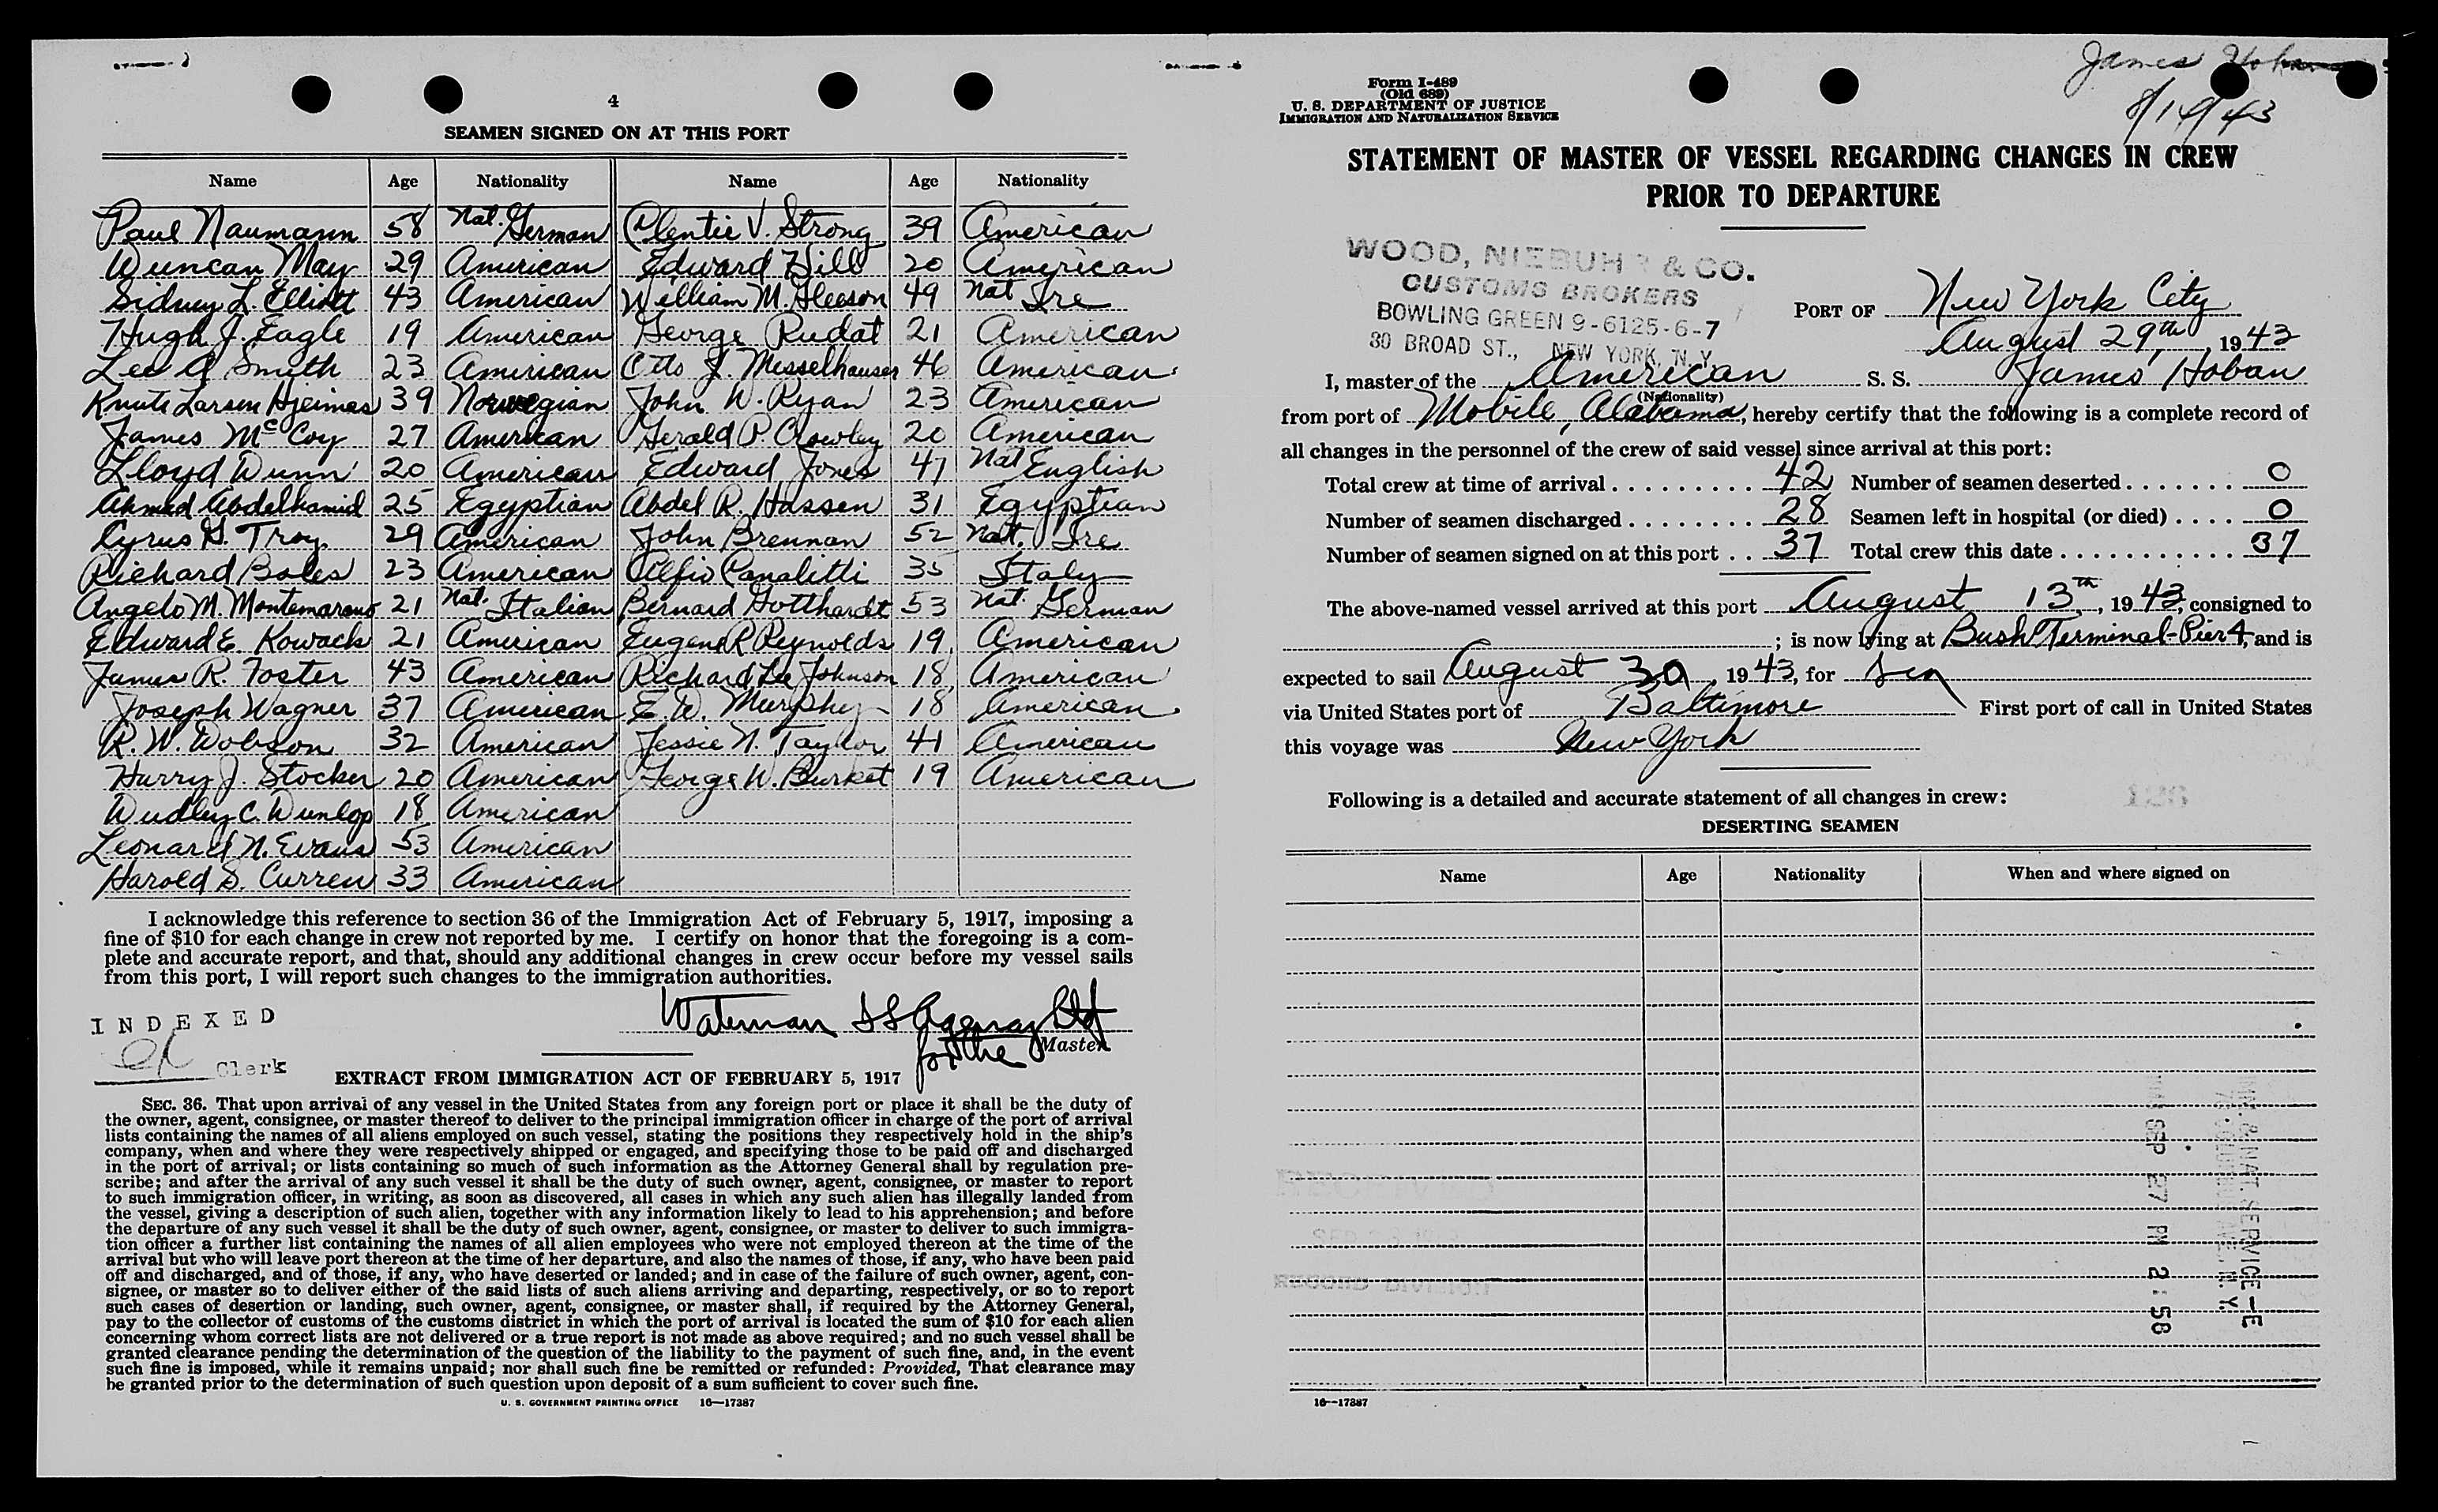 4
SEAMEN SIGNED ON AT THIS PORT
Name Age Nationality Name Age Nationality
Paul Naumann 58 Nat. German Clentie V. Strong 39 American
Duncan May 29 American Edward Hill 20 American
Sidney L. Elliott 43 American William M. Gleeson 49 Nat Ire
Hugh J. Eagle 19 American George Rudat 21 American
Lee A Smith 23 American Otto J. Messelhauser 46 American
Knute Larsen Hjeimas 39 Norwegian John W. Ryan 23 American
James McCoy 27 American Gerald P. Crowley 20 American
Lloyd Dunn 20 American Edward Jones 47 Nat English
Ahmed Abdelhamid 25 Egyptian Abdel R. Hassen 31 Egyptian
Cyrus G. Troy 29 American John Brennan 52 Nat. Ire
Richard Boles 23 American Alfio Panalitti 35 Italy
Angelo M. Montemarano 21 Nat. Italian Bernard Gotthardt 53 Nat. German
Edward E. Kowach 21 American Eugene R Reynolds 19 American
James R. Foster 43 American Richard Lee Johnson 18 American
Joseph Wagner 37 American E. D. Murphy 18 American
R. W. Dobson 32 American Jessie N. Taylor 41 American
Harry J. Stocker 20 American George W. Burket 19 American
Dudley C. Dunlop 18 American
Leonard N. Evans 53 American
Harold S. Curren 33 American
I acknowledge this reference to section 36 of the Immigration Act of February 5, 1917, imposing a
fine of $10 for each change in crew not reported by me. I certify on honor that the foregoing is a com-
plete and accurate report, and that, should any additional changes in crew occur before my vessel sails
from this port, I will report such changes to the immigration authorities.
Waterman SS Agency Ltd
for the Master
INDEXED
Clerk
EXTRACT FROM IMMIGRATION ACT OF FEBRUARY 5, 1917
SEC. 36. That upon arrival of any vessel in the United States from any foreign port or place it shall be the duty of
the owner, agent, consignee, or master thereof to deliver to the principal immigration officer in charge of the port of arrival
lists containing the names of all aliens employed on such vessel, stating the positions they respectively hold in the ship's
company, when and where they were respectively shipped or engaged, and specifying those to be paid off and discharged
in the port of arrival; or lists containing so much of such information as the Attorney General shall by regulation pre-
scribe; and after the arrival of any such vessel it shall be the duty of such owner, agent, consignee, or master to report
to such immigration officer, in writing, as soon as discovered, all cases in which any such alien has illegally landed from
the vessel, giving a description of such alien, together with any information likely to lead to his apprehension; and before
the departure of any such vessel it shall be the duty of such owner, agent, consignee, or master to deliver to such immigra-
tion officer a further list containing the names of all alien employees who were not employed thereon at the time of the
arrival but who will leave port thereon at the time of her departure, and also the names of those, if any, who have been paid
off and discharged, and of those, if any, who have deserted or landed; and in case of the failure of such owner, agent, con-
signee, or master so to deliver either of the said lists of such aliens arriving and departing, respectively, or so to report
such cases of desertion or landing, such owner, agent, consignee, or master shall, if required by the Attorney General,
pay to the collector of customs of the customs district in which the port of arrival is located the sum of $10 for each alien
concerning whom correct lists are not delivered or a true report is not made as above required; and no such vessel shall be
granted clearance pending the determination of the question of the liability to the payment of such fine, and, in the event
such fine is imposed, while it remains unpaid; nor shall such fine be remitted or refunded: Provided, That clearance may
be granted prior to the determination of such question upon deposit of a sum sufficient to cover such fine.
U. S. GOVERNMENT PRINTING OFFICE 16—17387
James Hoban
8/14/43
Form I-489
(Old 689)
U. S. DEPARTMENT OF JUSTICE
IMMIGRATION AND NATURALIZATION SERVICE
STATEMENT OF MASTER OF VESSEL REGARDING CHANGES IN CREW
PRIOR TO DEPARTURE
WOOD, NIEBUHR & CO.
CUSTOMS BROKERS
BOWLING GREEN 9-6125-6-7
80 BROAD ST., NEW YORK, N. Y.
PORT OF New York City
August 29th, 1943
I, master of the American S. S. James Hoban
(Nationality)
from port of Mobile, Alabama, hereby certify that the following is a complete record of
all changes in the personnel of the crew of said vessel since arrival at this port:
Total crew at time of arrival 42 Number of seamen deserted 0
Number of seamen discharged 28 Seamen left in hospital (or died) 0
Number of seamen signed on at this port 37 Total crew this date 37
The above-named vessel arrived at this port August 13th, 1943, consigned to
; is now lying at Bush Terminal-Pier 4, and is
expected to sail August 30, 1943, for Sea
via United States port of Baltimore First port of call in United States
this voyage was New York
Following is a detailed and accurate statement of all changes in crew:
126
DESERTING SEAMEN
Name Age Nationality When and where signed on
IMM. & NAT. SERVICE—E
SEP 27 PM 2:58
RECORD DIVISION
16—17387